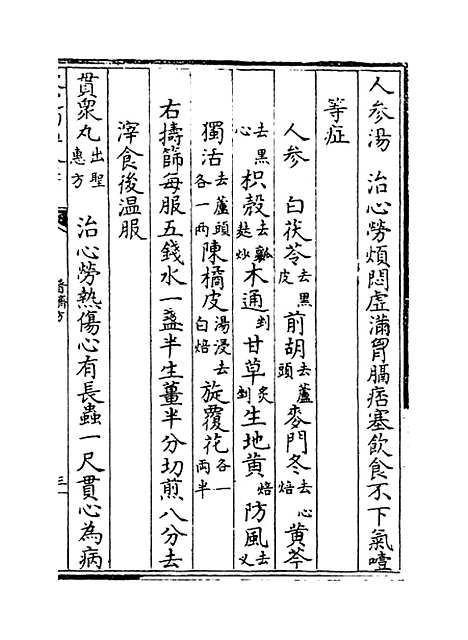 人參湯 治心勞煩悶虛滿胷膈痞塞飲食不下氣噎
等症
人參 白茯苓去黑皮 前胡去蘆頭 麥門冬去心焙 黃芩
去黑心 枳殼去瓤麩炒 木通剉 甘草炙剉 生地黃焙 防風去叉
獨活去蘆頭各一兩 陳橘皮湯浸去白焙 旋覆花各一兩半
右擣篩每服五錢水一盞半生薑半分切煎八分去
滓食後溫服
貫眾丸出聖惠方 治心勞熱傷心有長蟲一尺貫心為病
普濟方
三